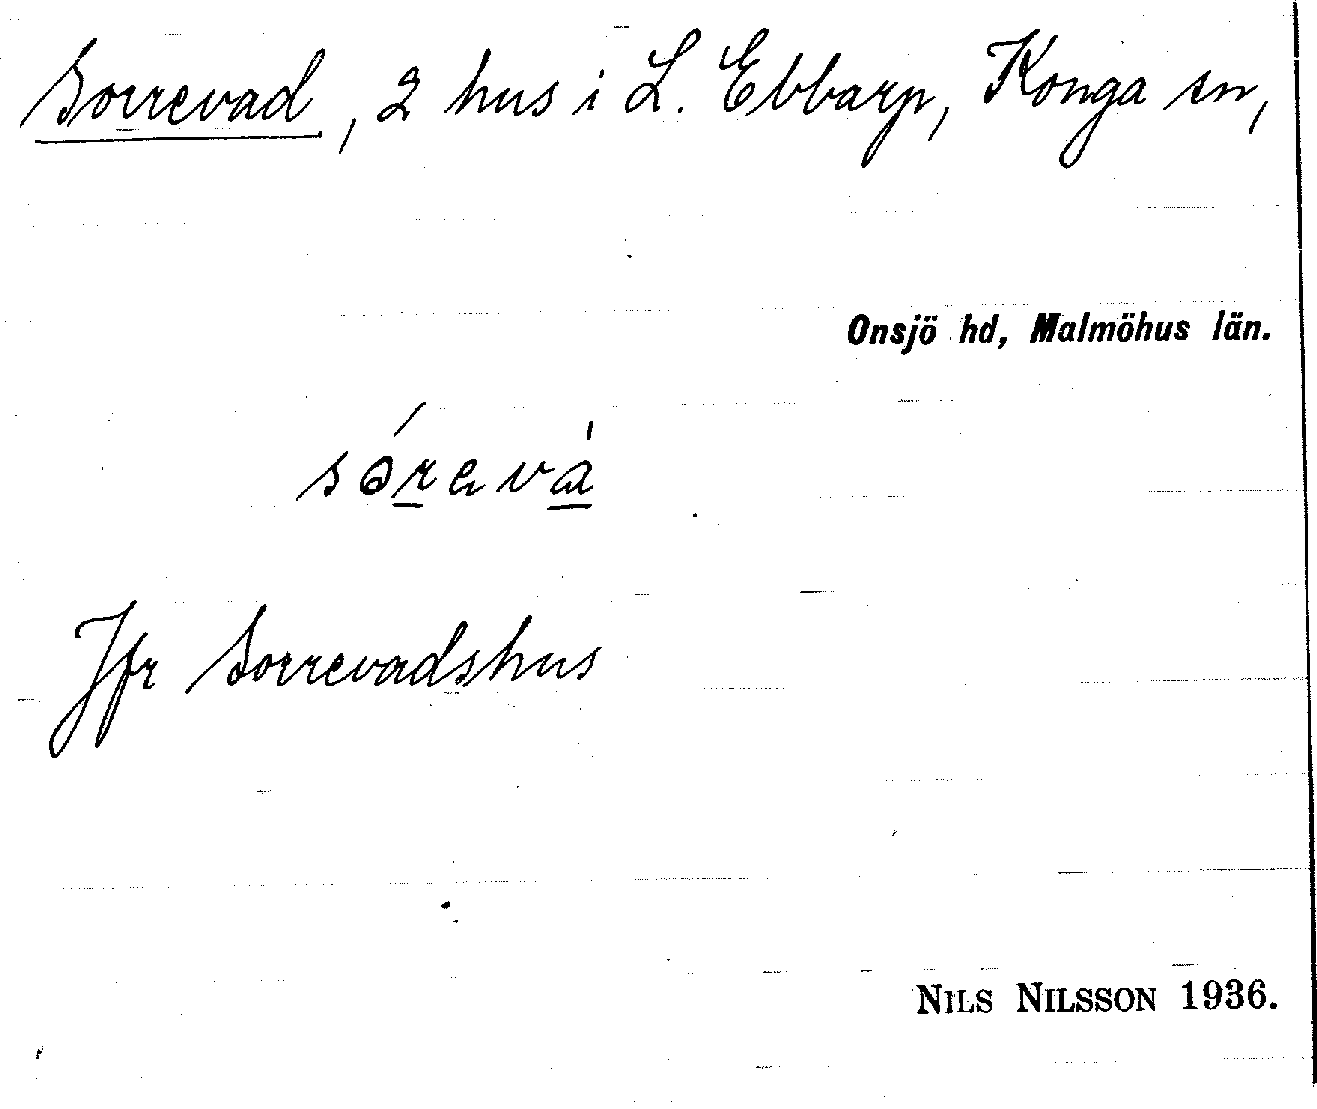 Sorrevad, 2 hus i L. Ebbarp, Konga sn,
Onsjö hd, Malmöhus län.
Jfr Sorrevadshus
NILS NILSSON 1936.